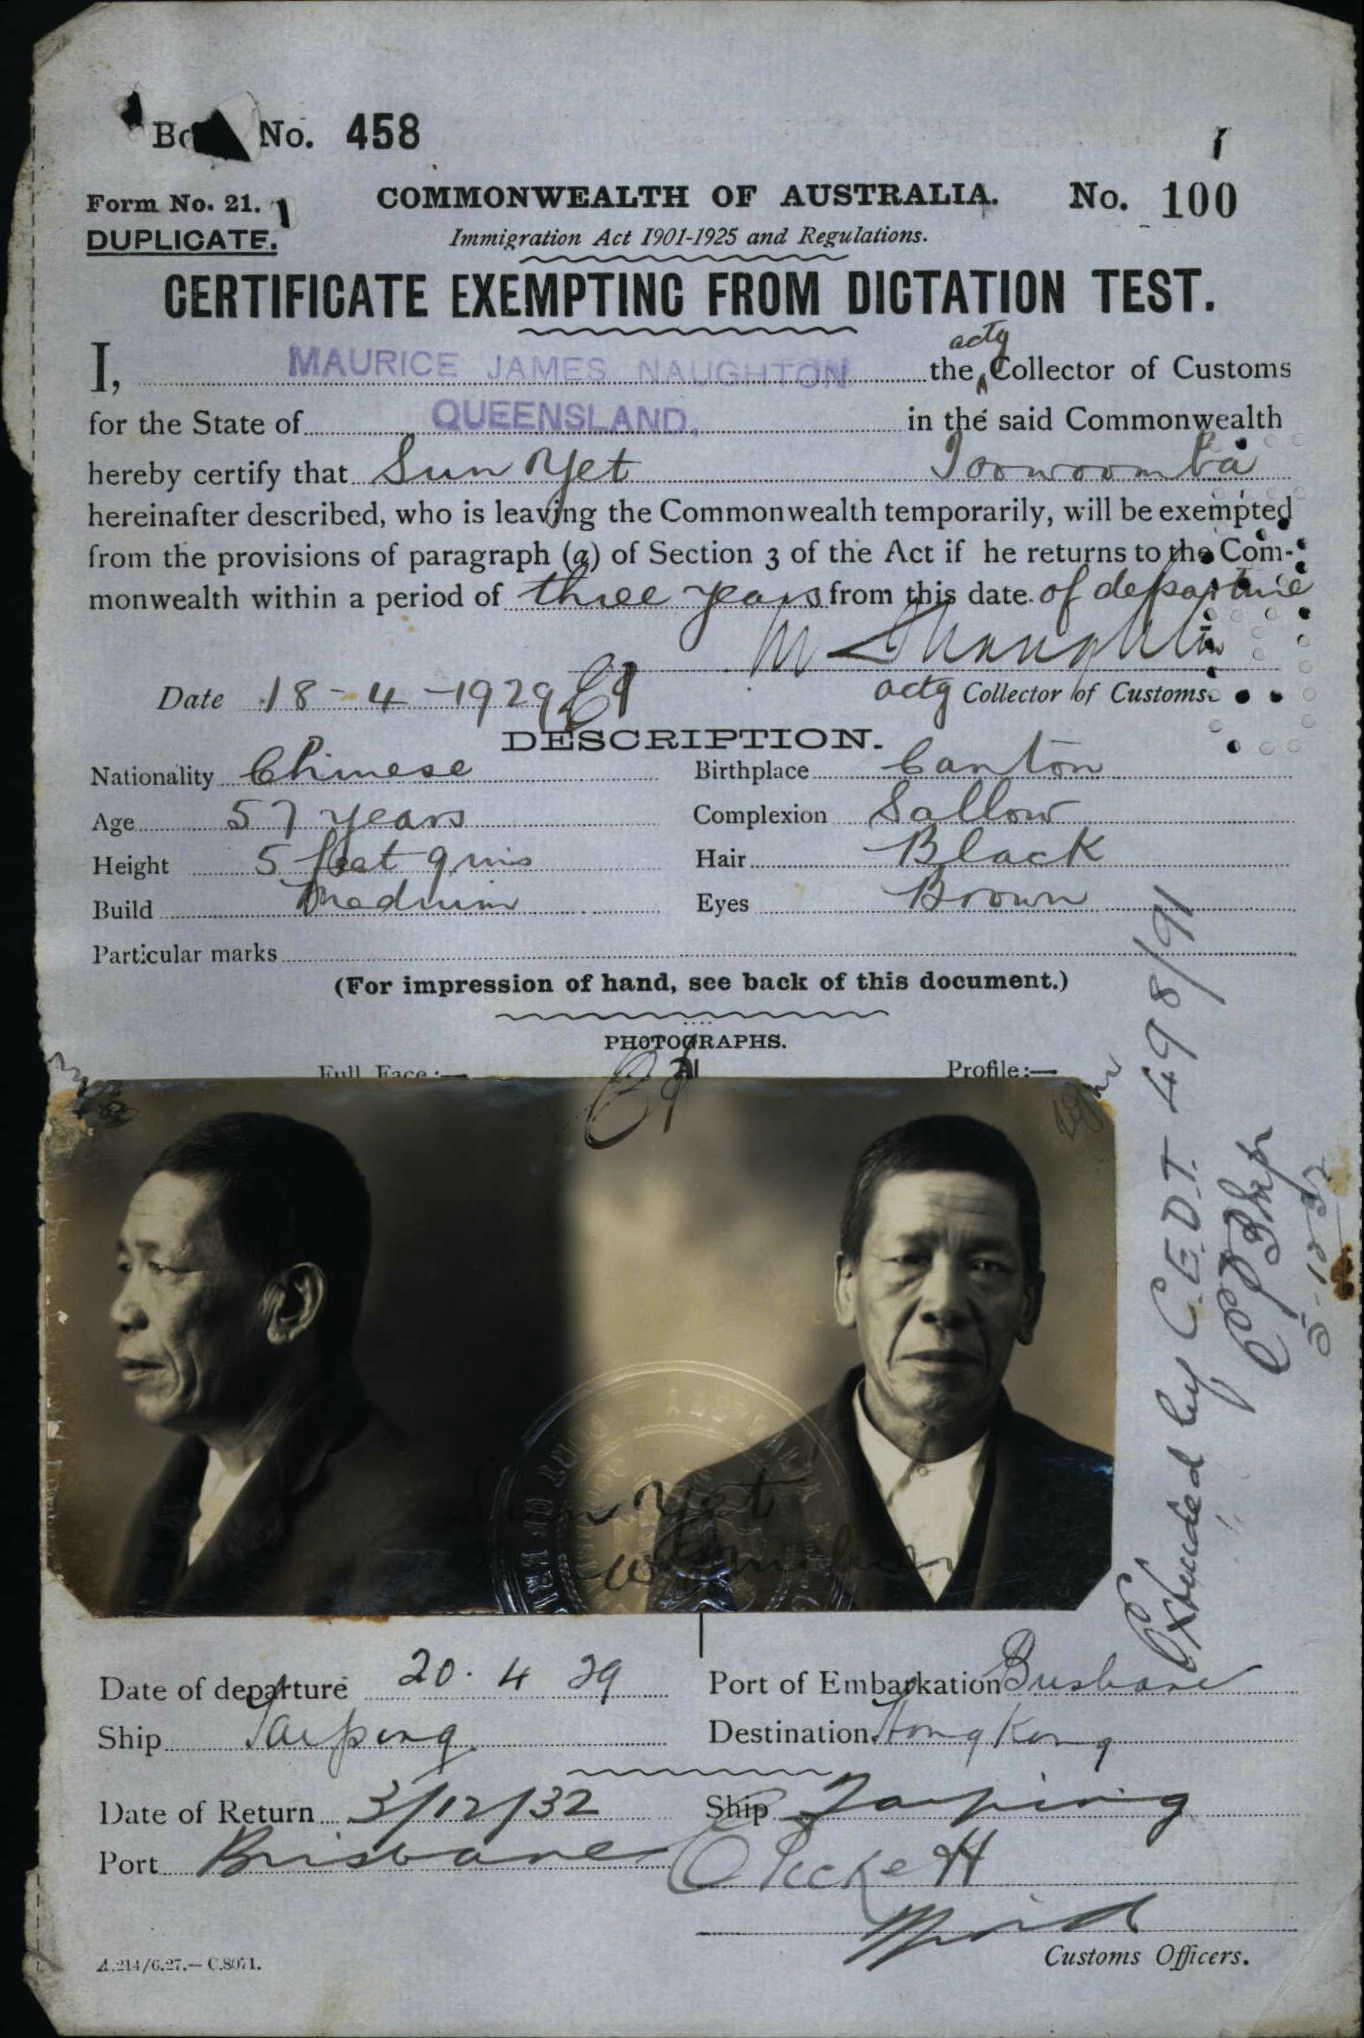 No. 458
Form No. 21.
DUPLICATE.
COMMONWEALTH OF AUSTRALIA.
No. 100
Immigration Act 1901-1925 and Regulations.
CERTIFICATE EXEMPTING FROM DICTATION TEST.
I, MAURICE JAMES NAUGHTON the actg Collector of Customs
for the State of QUEENSLAND, in the said Commonwealth
hereby certify that Sun Yet Toowoomba
hereinafter described, who is leaving the Commonwealth temporarily, will be exempted
from the provisions of paragraph (a) of Section 3 of the Act if he returns to the Com-
monwealth within a period of three years from this date of departure
Date 18-4-1929
actg Collector of Customs.
DESCRIPTION.
Nationality Chinese Birthplace Canton
Age 57 years Complexion Sallow
Height 5 feet 9 ins Hair Black
Build Medium Eyes Brown
Particular marks
(For impression of hand, see back of this document.)
PHOTOGRAPHS.
Full Face:— Profile:—
Sun Yet
Extended by C.E.D.T. 498/91
Date of departure 20.4 29 Port of Embarkation Brisbane
Ship Taiping Destination Hong Kong
Date of Return 3/12/32 Ship Taiping
Port Brisbane
Customs Officers.
A.214/6.27.—C.8071.